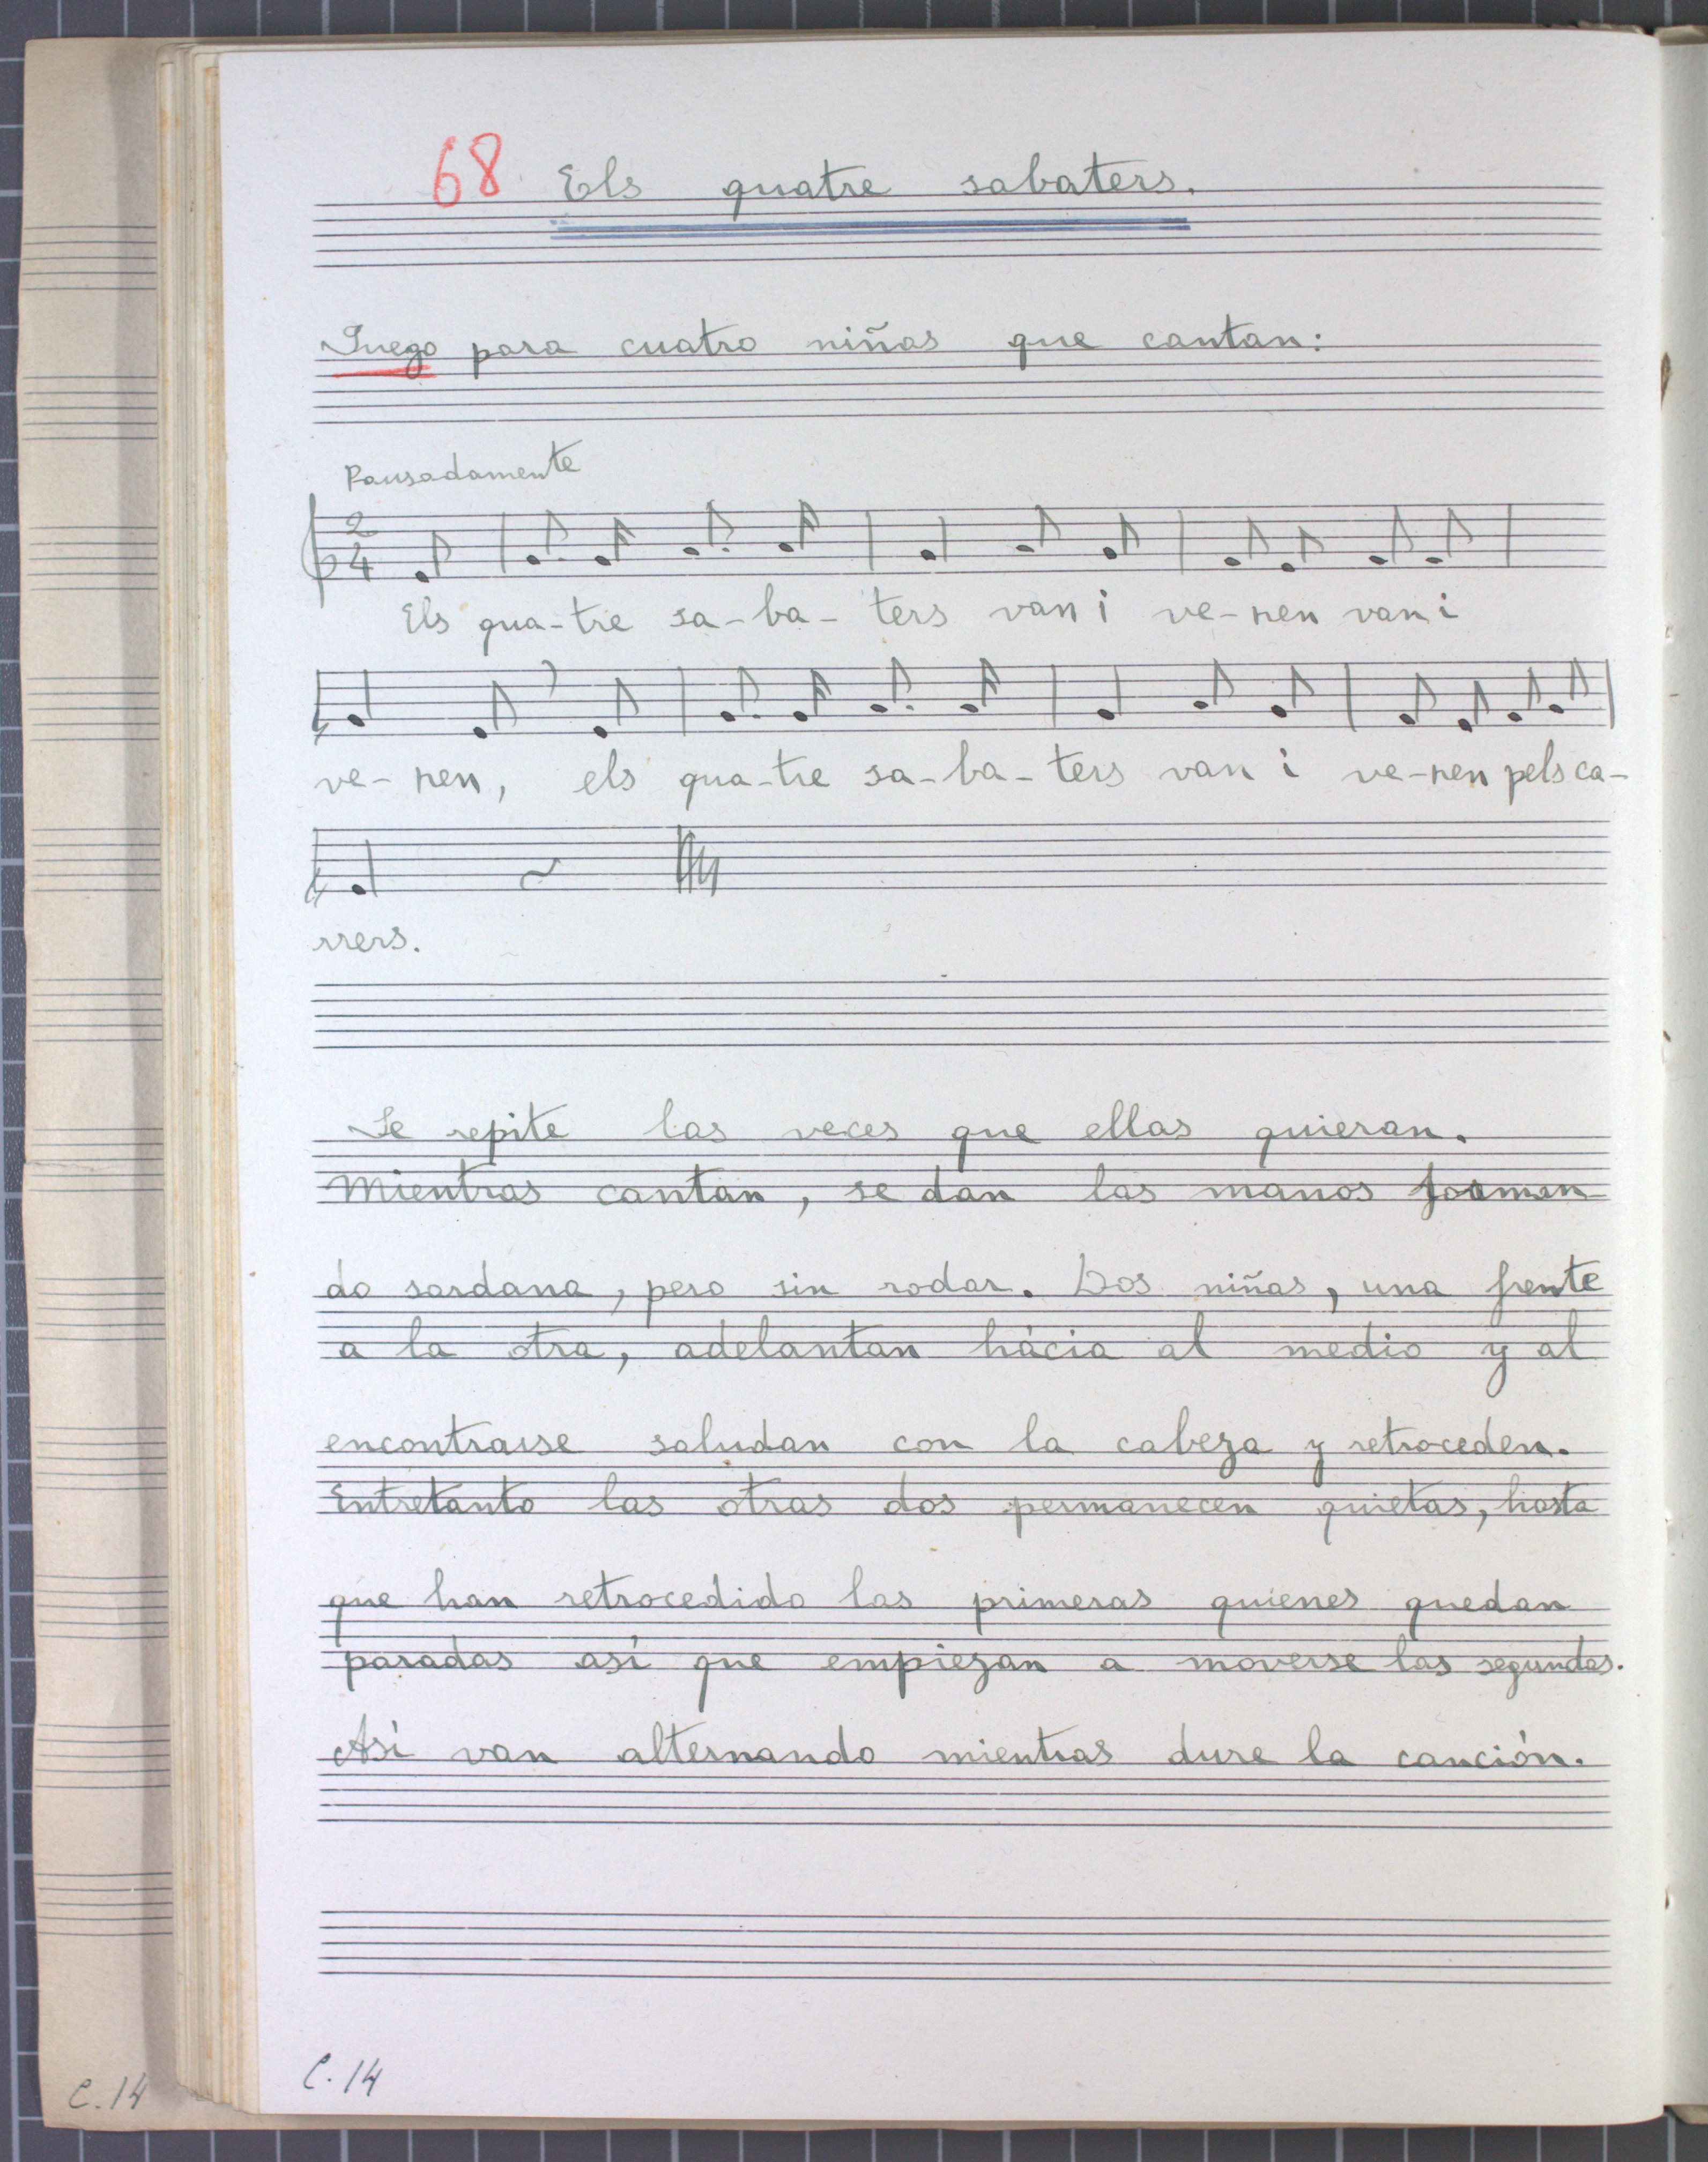 68 Els quatre sabaters.
Juego para cuatro niñas que cantan:
Pausadamente
2
4
Els qua-tre sa-ba-ters van i ve-nen van i
ve-nen, els qua-tre sa-ba-ters van i ve-nen pels ca-
rrers.
Se repite las veces que ellas quieran.
Mientras cantan, se dan las manos forman-
do sardana, pero sin rodar. Dos niñas, una frente
a la otra, adelantan hácia al medio y al
encontrarse saludan con la cabeza y retroceden.
Entretanto las otras dos permanecen quietas, hasta
que han retrocedido las primeras quienes quedan
paradas así que empiezan a moverse las segundas.
Así van alternando mientras dure la canción.
C.14
C.14